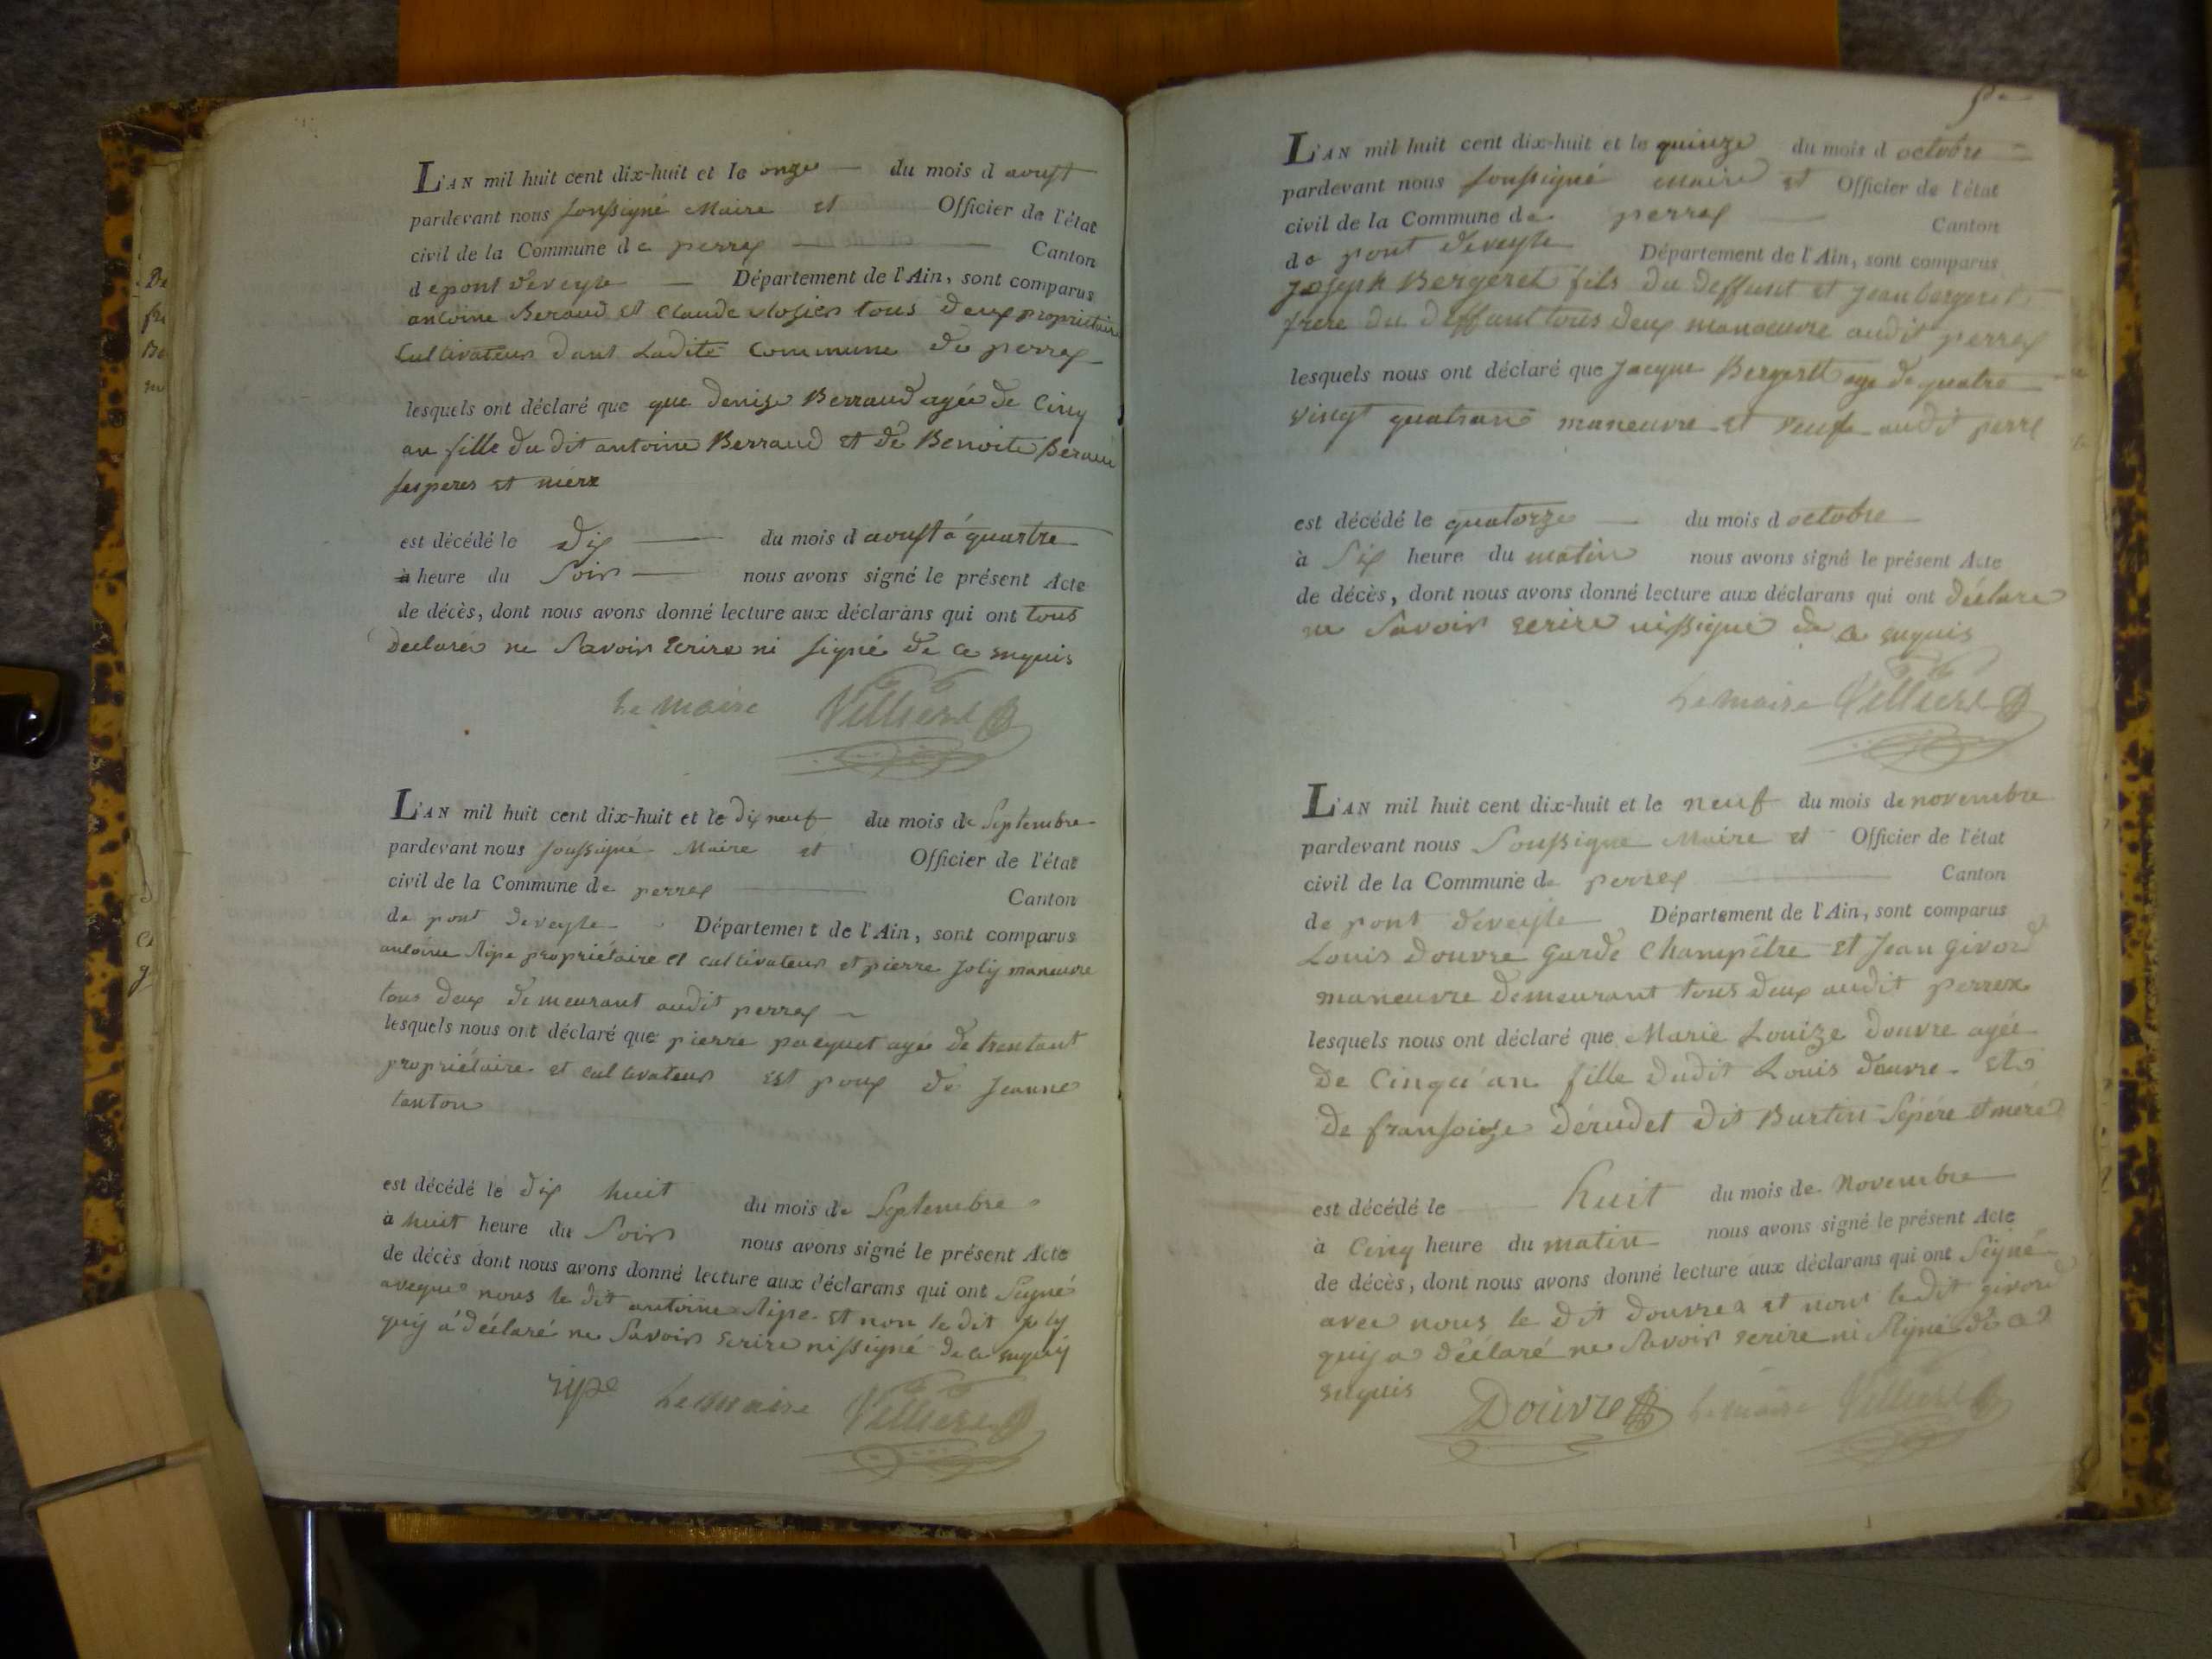 L'AN mil huit cent dix-huit et le onze du mois d aoust
pardevant nous soussigné Maire et Officier de l'état
civil de la Commune de perrex Canton
de pont deveyle Département de l'Ain, sont comparus
antoine Beraud et Claude tous deux proprietaire
Cultivateur dant Ladite Commune de perrex
lesquels ont déclaré que que denise Berraud agée de Cinq
an fille du dit antoine Berraud et de Benoite Beraud
ses peres et mére
est décédé le dix du mois d aoust á quastre
à heure du Soir nous avons signé le présent Acte
de décès, dont nous avons donné lecture aux déclarans qui ont tous
Declaré ne Savoir Ecrire ni signé de ce enquis
Le maire Villiere
L'AN mil huit cent dix-huit et le dix neuf du mois de Septembre
pardevant nous soussigné Maire et Officier de l'état
civil de la Commune de perrex Canton
de pont deveyle Département de l'Ain, sont comparus
antoine Ripe propriétaire et cultivateur et pierre Joly maneuvre
tous deux demeurant audit perrex
lesquels nous ont déclaré que pierre pacquet agé de trentant
propriétaire et cultivateur est poux de Jeanne
tanton
est décédé le dix huit du mois de Septembre
à huit heure du Soir nous avons signé le présent Acte
de décès dont nous avons donné lecture aux déclarans qui ont Signé
avegue nous le dit antoine Ripe et non le dit joly
quij á déclaré ne Savoir Ecrire nissigné de ce enquij
ripe Le maire Villiere
L'AN mil huit cent dix-huit et le quinze du mois d octobre
pardevant nous soussigné Maire et Officier de l'état
civil de la Commune de perrex Canton
de pont deveyle Département de l'Ain, sont comparus
Joseph Bergeret fils du deffunt et Jean bergeret
frere du deffunt tous deux manoeuvre audit perrex
lesquels nous ont déclaré que Jacque Bergerett age de quatre
vingt quatrans maneuvre et veufe audit perre
est décédé le quatorze du mois d octobre
à Six heure du matin nous avons signé le présent Acte
de décès, dont nous avons donné lecture aux déclarans qui ont déclaré
ne Savoir ecrire nissigné de ce enquis
Le maire Villiere
L'AN mil huit cent dix-huit et le neuf du mois de novembre
pardevant nous Soussigné Maire et Officier de l'état
civil de la Commune de perrex Canton
de pont déveyle Département de l'Ain, sont comparus
Louis Douvre Garde Champêtre et Jean givord
maneuvre demeurant tous deux audit perrex
lesquels nous ont déclaré que Marie Louize douvre agée
de Cinqu'an fille dudit Louis douvre et
de fransoize dérudet dit Burtin Sepére et mére
est décédé le huit du mois de Novembre
à Cinq heure du matin nous avons signé le présent Acte
de décès, dont nous avons donné lecture aux déclarans qui ont Signé
avec nous le dit Douvre et nont ledit givord
quij a déclaré ne Savoir ecrire ni Signé de ce
enquis Douvre Le maire Villiere